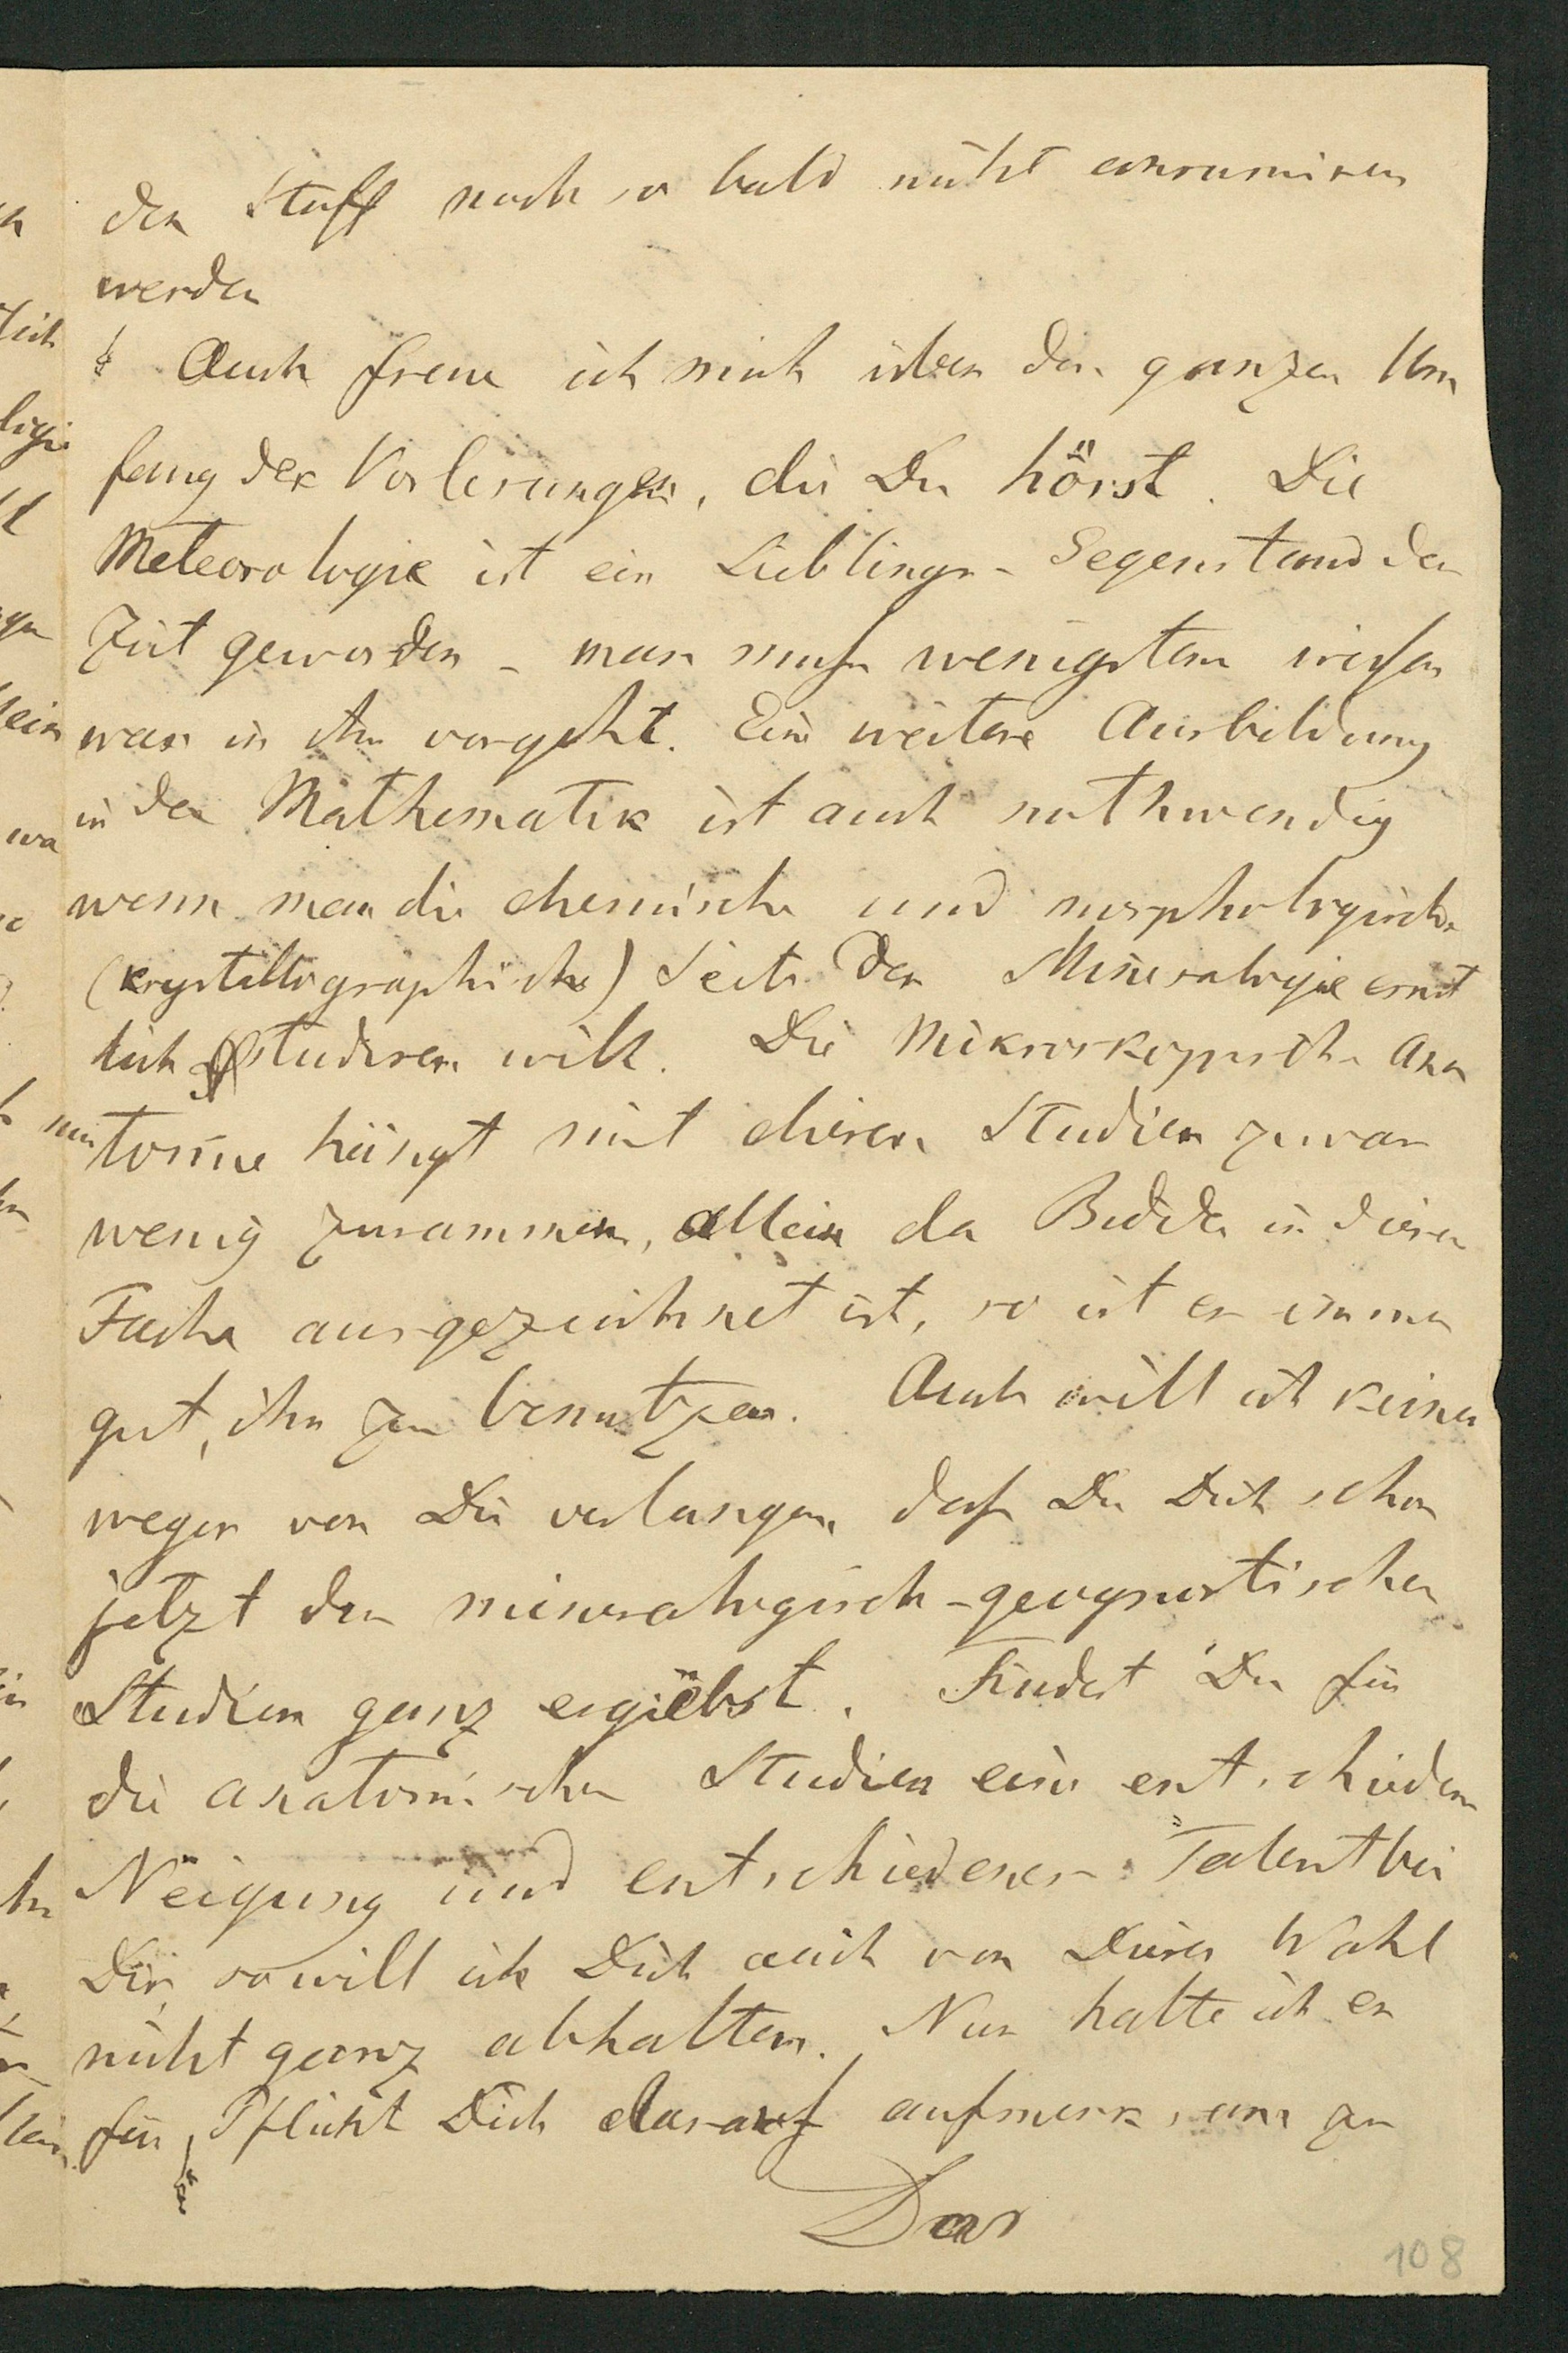 den Stoff noch so bald nicht consumiren
werden
Auch freue ich mich über den ganzen Um
fang der Vorlesungen, die Du hörst. Die
Meteorologie ist ein Lieblings-Gegenstand der
Zeit geworden – man muß wenigstens wissen
was in ihr vorgeht. Eine weitere Ausbildung
in der Mathematik ist auch nothwendig
wenn man die chemische und morphologische
(krystallographische) Seite der Mineralogie ernst
lich studiren will. Die Mikroskopische Ana
tomie hängt mit diesen Studien zwar
wenig zusammen, allein da Bidder in diesem
Fache ausgezeichnet ist, so ist es immer
gut, ihn zu benutzen. Auch will ich keines
weges von Dir verlangen, daß Du Dich schon
jetzt den mineralogisch-geognostischen
Studien ganz ergiebst. Findest Du für
die anatomischen Studien eine entschiedene
Neigung und entschiedenes Talent bei
Dir, so will ich Dich auch von dieser Wahl
nicht ganz abhalten. Nur halte ich es
für Pflicht Dich darauf aufmerksam zu
Das
108